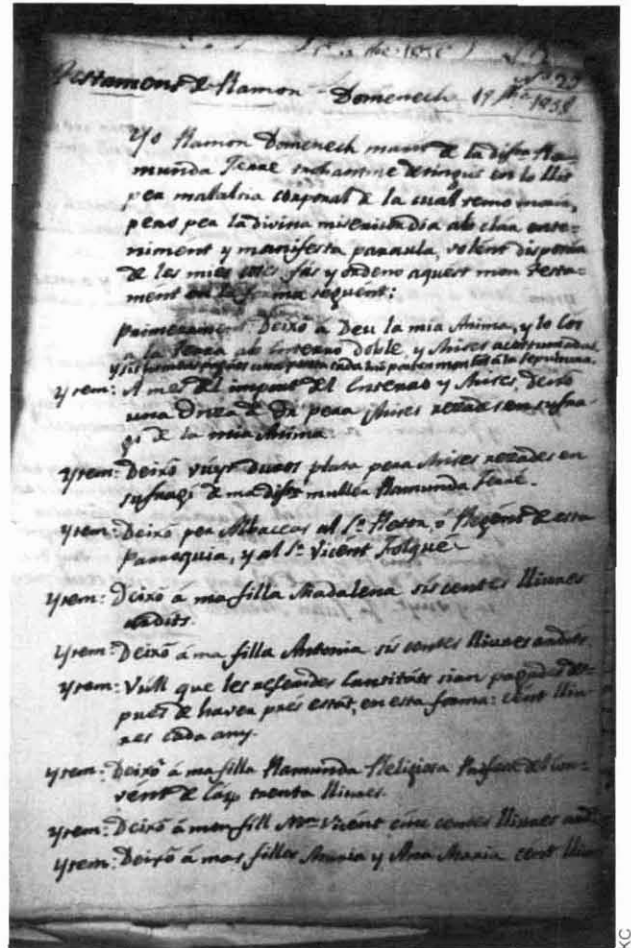 Nº 23
Testament de Ramon Domenech 19 1838
Yo Ramon Domenech marit de la difta Ra-
munda Ferré trobantme detingut en lo llit
per malaltia corporal de la cual temo morir,
pero per la divina misericordia ab clar ente-
niment y manifesta paraula, volent disposar
de les mies coses fas y ordeno aquest mon testa-
ment en la forma seguent:
Primerament: Deixo a Deu la mia Anima, y lo Cos
a la terra ab Enterro doble, y Mises acostumades
Ytem: A mes del import del Enterro y Mises, deixo
una pera Mises resades en sufra-
gi de la mia Anima.
Ytem: Deixo vuyt duros plata pera Mises resades en
sufragi de ma difta muller Ramunda Ferré.
Ytem: Deixo per Albaceas al Sr Retor, o Regent de esta
Parroquia, y al Sr Vicent Folqué
Ytem: Deixo a ma filla Madalena sis centes lliures
ardits.
Ytem: Deixo á ma filla Antonia sis centes lliures ardits.
Ytem: Vull que les referides Cantitats sian pagades des-
pues de haver pres estat, en esta forma: cent lliu-
res cada any.
Ytem: Deixo á ma filla Ramunda Religiosa Profesa del Con-
vent de Casp trenta lliures.
Ytem: Deixo á mon fill Mn Vicent cinc centes lliures ard
Ytem: Deixo á mas fillas Maria y Ana Maria cent lliu